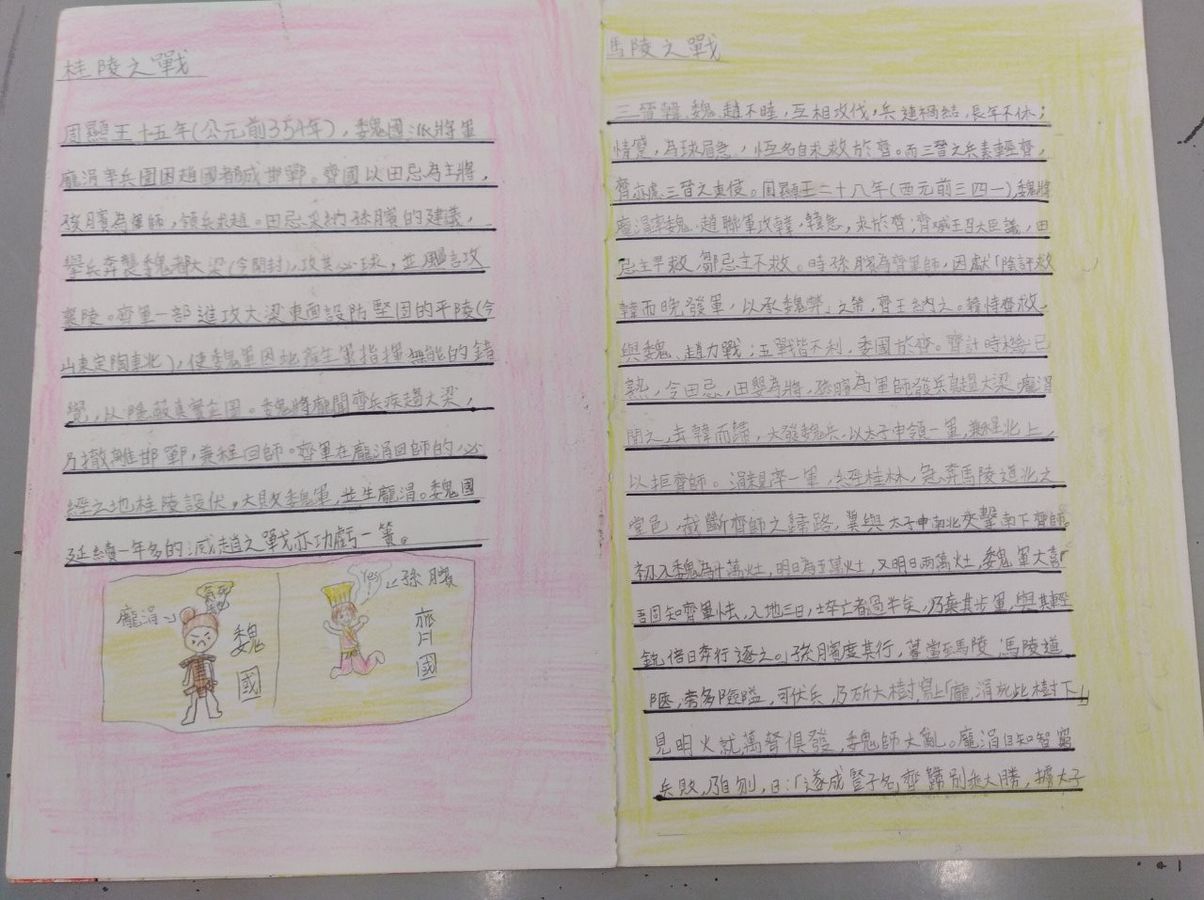 桂陵之戰
周顯王十五年(公元前354年),魏國派將軍
龐涓率兵圍困趙國都城邯鄲。齊國以田忌為主將,
孫臏為軍師,領兵求趙。田忌采納孫臏的建議,
舉兵奔襲魏都大梁(今開封),攻其必救,並佯言攻
襄陵。齊軍一部進攻大梁東面設防堅固的平陵(今
山東定陶東北),使魏軍因此產生軍指揮無能的錯
覺,以隱蔽真實企圖。魏將龐聞齊兵疾趨大梁,
乃撤離邯鄲,兼程回師。齊軍在龐涓回師的必
經之地桂陵設伏,大敗魏軍,並生龐涓。魏國
延續一年多的滅趙之戰亦功虧一簣。
龐涓
魏國
Yes
孫臏
齊國
馬陵之戰
三晉韓、魏、趙不睦,互相攻伐,兵連禍結,長年不休;
情蹙,為球眉急,恆各自求救於齊。而三晉之兵素輕齊,
齊亦處三晉之東侵。周顯王二十八年(西元前三四一),魏將
龐涓率魏、趙聯軍攻韓,韓急,求於齊;齊威王召大臣議,田
忌主早救,鄒忌主不救。時孫臏為齊軍師,因獻「陰許救
韓而晚發軍,以承魏弊」之策,齊王納之。韓恃齊救,
與魏、趙力戰;五戰皆不利,委國於齊。齊計時機已
熟,令田忌,田嬰為將,孫臏為軍師發兵直趨大梁。龐涓
聞之,去韓而歸,大發魏兵,以太子申領一軍,兼程北上,
以拒齊師。涓親率一軍,經桂林,急奔馬陵道北之
堂邑,截斷齊師之歸路,冀與太子申南北夾擊南下齊師。
初入魏為十萬灶,明日為五萬灶,又明日兩萬灶,魏軍大喜「
吾固知齊軍怯,入地三日,士卒亡者過半矣,乃棄其步軍,與其輕
銳倍日奔行逐之。」孫臏度其行,暮當至馬陵,馬陵道
陿,旁多險隘,可伏兵,乃斫大樹,寫上「龐涓死此樹下」
見明火就萬弩俱發,魏師大亂。龐涓自知智窮
兵敗,乃自刎,曰:「遂成豎子名,齊歸別並大勝,擄太子